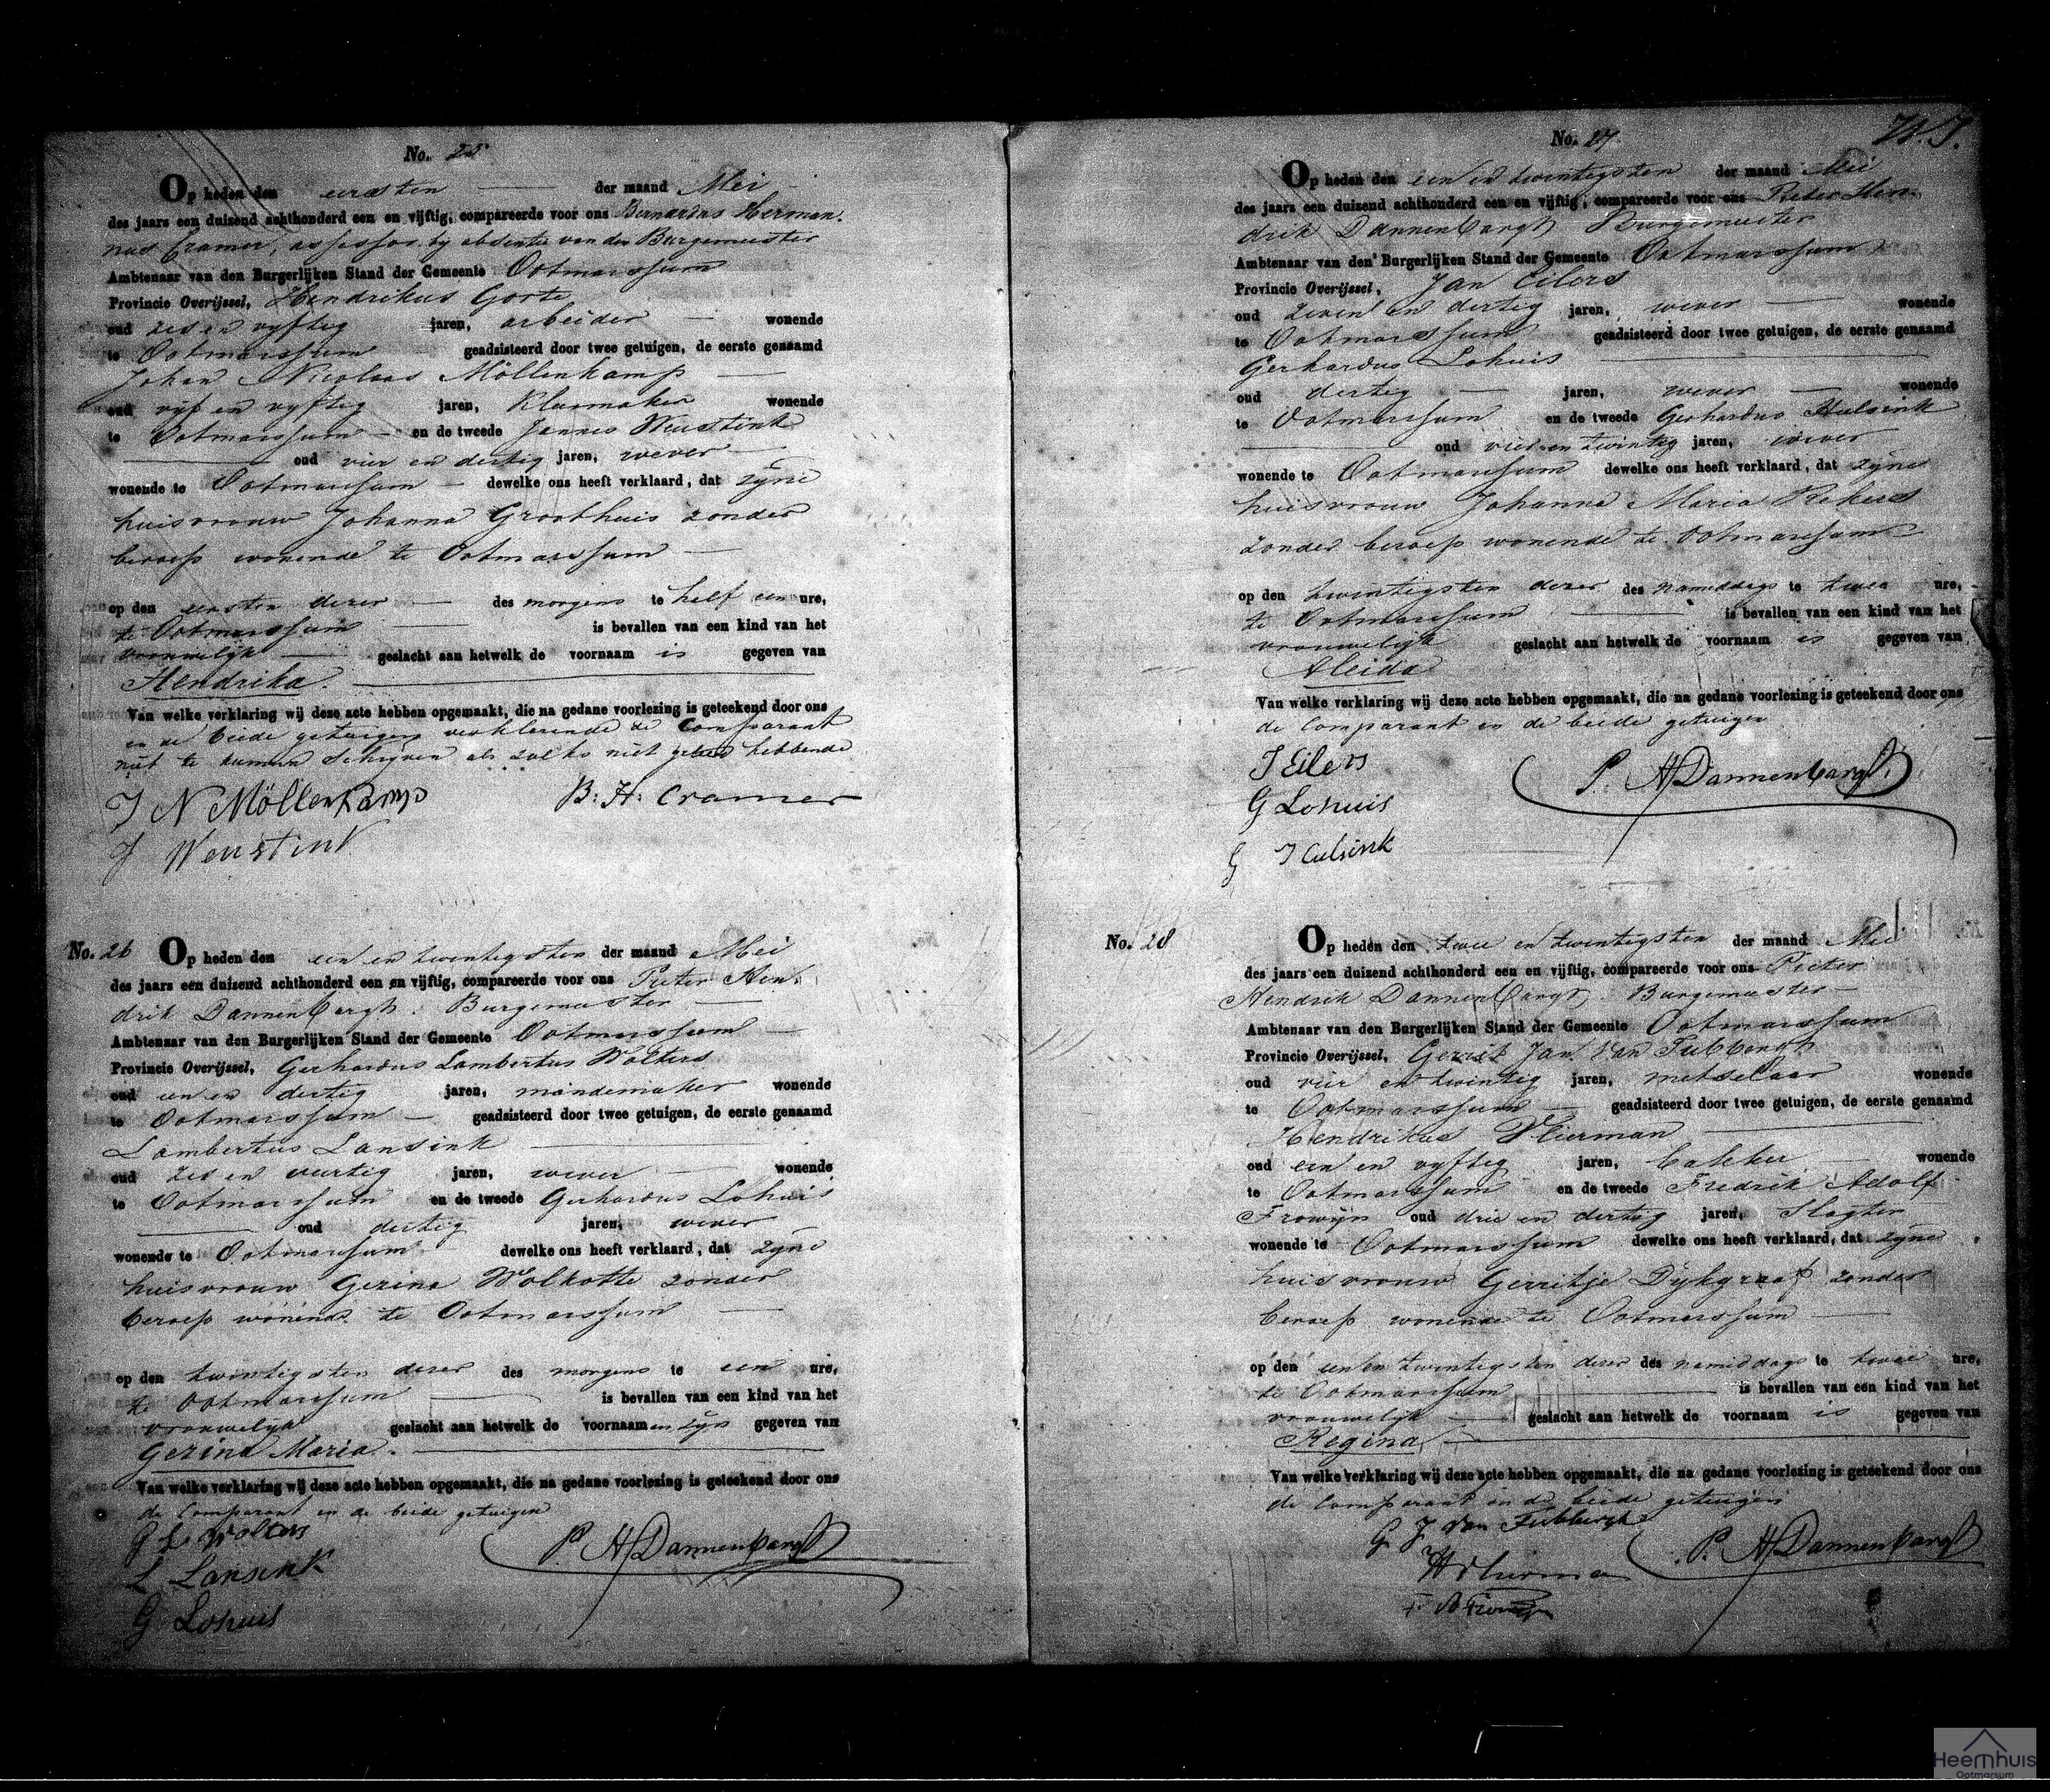 No. 25
Op heden den eersten der maand Mei
des jaars een duizend achthonderd een en vijftig, compareerde voor ons Bernardus Herman-
nus Cramer, assessor by absentie van den Burgemeester
Ambtenaar van den Burgerlijken Stand der Gemeente Ootmarssum
Provincie Overijssel, Hendrikus Gorte
oud zes en vyftig jaren, arbeider wonende
te Ootmarssum geadsisteerd door twee getuigen, de eerste genaamd
Johan Nicolaas Möllenkamp
oud vyf en vyftig jaren, Kleermaker wonende
te Ootmarssum en de tweede Jannes Weustink
oud vier en dertig jaren, wever
wonende te Ootmarssum dewelke ons heeft verklaard, dat zyne
huisvrouw Johanna Groothuis zonder
beroep wonende te Ootmarssum
op den eersten dezer des morgens te half een ure,
te Ootmarssum is bevallen van een kind van het
vrouwelijk geslacht aan hetwelk de voornaam is gegeven van
Hendrika.
Van welke verklaring wij deze acte hebben opgemaakt, die na gedane voorlezing is geteekend door ons
en de beide getuigen verklarende de Comparant
niet te kunnen schryven als zulks niet geleerd hebbende
J N Möllenkamp B: H: Cramer
J Weustink
No. 26 Op heden den een en twintigsten der maand Mei
des jaars een duizend achthonderd een en vijftig, compareerde voor ons Pieter Hen-
drik Dannenbargh. Burgemeester
Ambtenaar van den Burgerlijken Stand der Gemeente Ootmarssum
Provincie Overijssel, Gerhardus Lambertus Wolters
oud een en dertig jaren, mandemaker wonende
te Ootmarssum geadsisteerd door twee getuigen, de eerste genaamd
Lambertus Lansink
oud zes en veertig jaren, wever wonende
te Ootmarssum en de tweede Gerhardus Lohuis
oud dertig jaren, wever
wonende te Ootmarssum dewelke ons heeft verklaard, dat zyne
huisvrouw Gezina Wolkotte zonder
beroep wonende te Ootmarssum
op den twintigsten dezer des morgens te een ure,
te Ootmarssum is bevallen van een kind van het
vrouwelijk geslacht aan hetwelk de voornaamen zyn gegeven van
Gezina Maria.
Van welke verklaring wij deze acte hebben opgemaakt, die na gedane voorlezing is geteekend door ons
de Comparant en de beide getuigen
G L Wolters P. H Dannenbargh
L Lansink
G Lohuis
No. 27
Op heden den een en twintigsten der maand Mei
des jaars een duizend achthonderd een en vijftig, compareerde voor ons Pieter Hen-
drik Dannenbargh Burgemeester
Ambtenaar van den Burgerlijken Stand der Gemeente Ootmarssum
Provincie Overijssel, Jan Eilers
oud zeven en dertig jaren, wever wonende
te Ootmarssum geadsisteerd door twee getuigen, de eerste genaamd
Gerhardus Lohuis
oud dertig jaren, wever wonende
te Ootmarssum en de tweede Gerhardus Hulsink
oud vier en twintig jaren, wever
wonende te Ootmarssum dewelke ons heeft verklaard, dat zyne
huisvrouw Johanna Maria Rekers
zonder beroep wonende te Ootmarssum
op den twintigsten dezer des namiddags te twee ure,
te Ootmarssum is bevallen van een kind van het
vrouwelijk geslacht aan hetwelk de voornaam is gegeven van
Aleida
Van welke verklaring wij deze acte hebben opgemaakt, die na gedane voorlezing is geteekend door ons
de Comparant en de beide getuigen
J Eilers P. H Dannenbargh
G Lohuis
G Hulsink
No. 28 Op heden den twee en twintigsten der maand Mei
des jaars een duizend achthonderd een en vijftig, compareerde voor ons Pieter
Hendrik Dannenbargh. Burgemeester
Ambtenaar van den Burgerlijken Stand der Gemeente Ootmarssum
Provincie Overijssel, Gerrit Jan van Tubbergh
oud vier en twintig jaren, metselaar wonende
te Ootmarssum geadsisteerd door twee getuigen, de eerste genaamd
Hendrikus Vlierman
oud een en vyftig jaren, bakker wonende
te Ootmarssum en de tweede Fredrik Adolf
Frowyn oud drie en dertig jaren, Slagter
wonende te Ootmarssum dewelke ons heeft verklaard, dat zyne
huisvrouw Gerritje Dykgraaf zonder
beroep wonende te Ootmarssum
op den een en twintigsten dezer des namiddags te twee ure,
te Ootmarssum is bevallen van een kind van het
vrouwelyk geslacht aan hetwelk de voornaam is gegeven van
Regina
Van welke verklaring wij deze acte hebben opgemaakt, die na gedane voorlezing is geteekend door ons
de Comparant en de beide getuigen
G J van Tubbergh P. H Dannenbargh
H Vlierman
Heemhuis
Ootmarsum